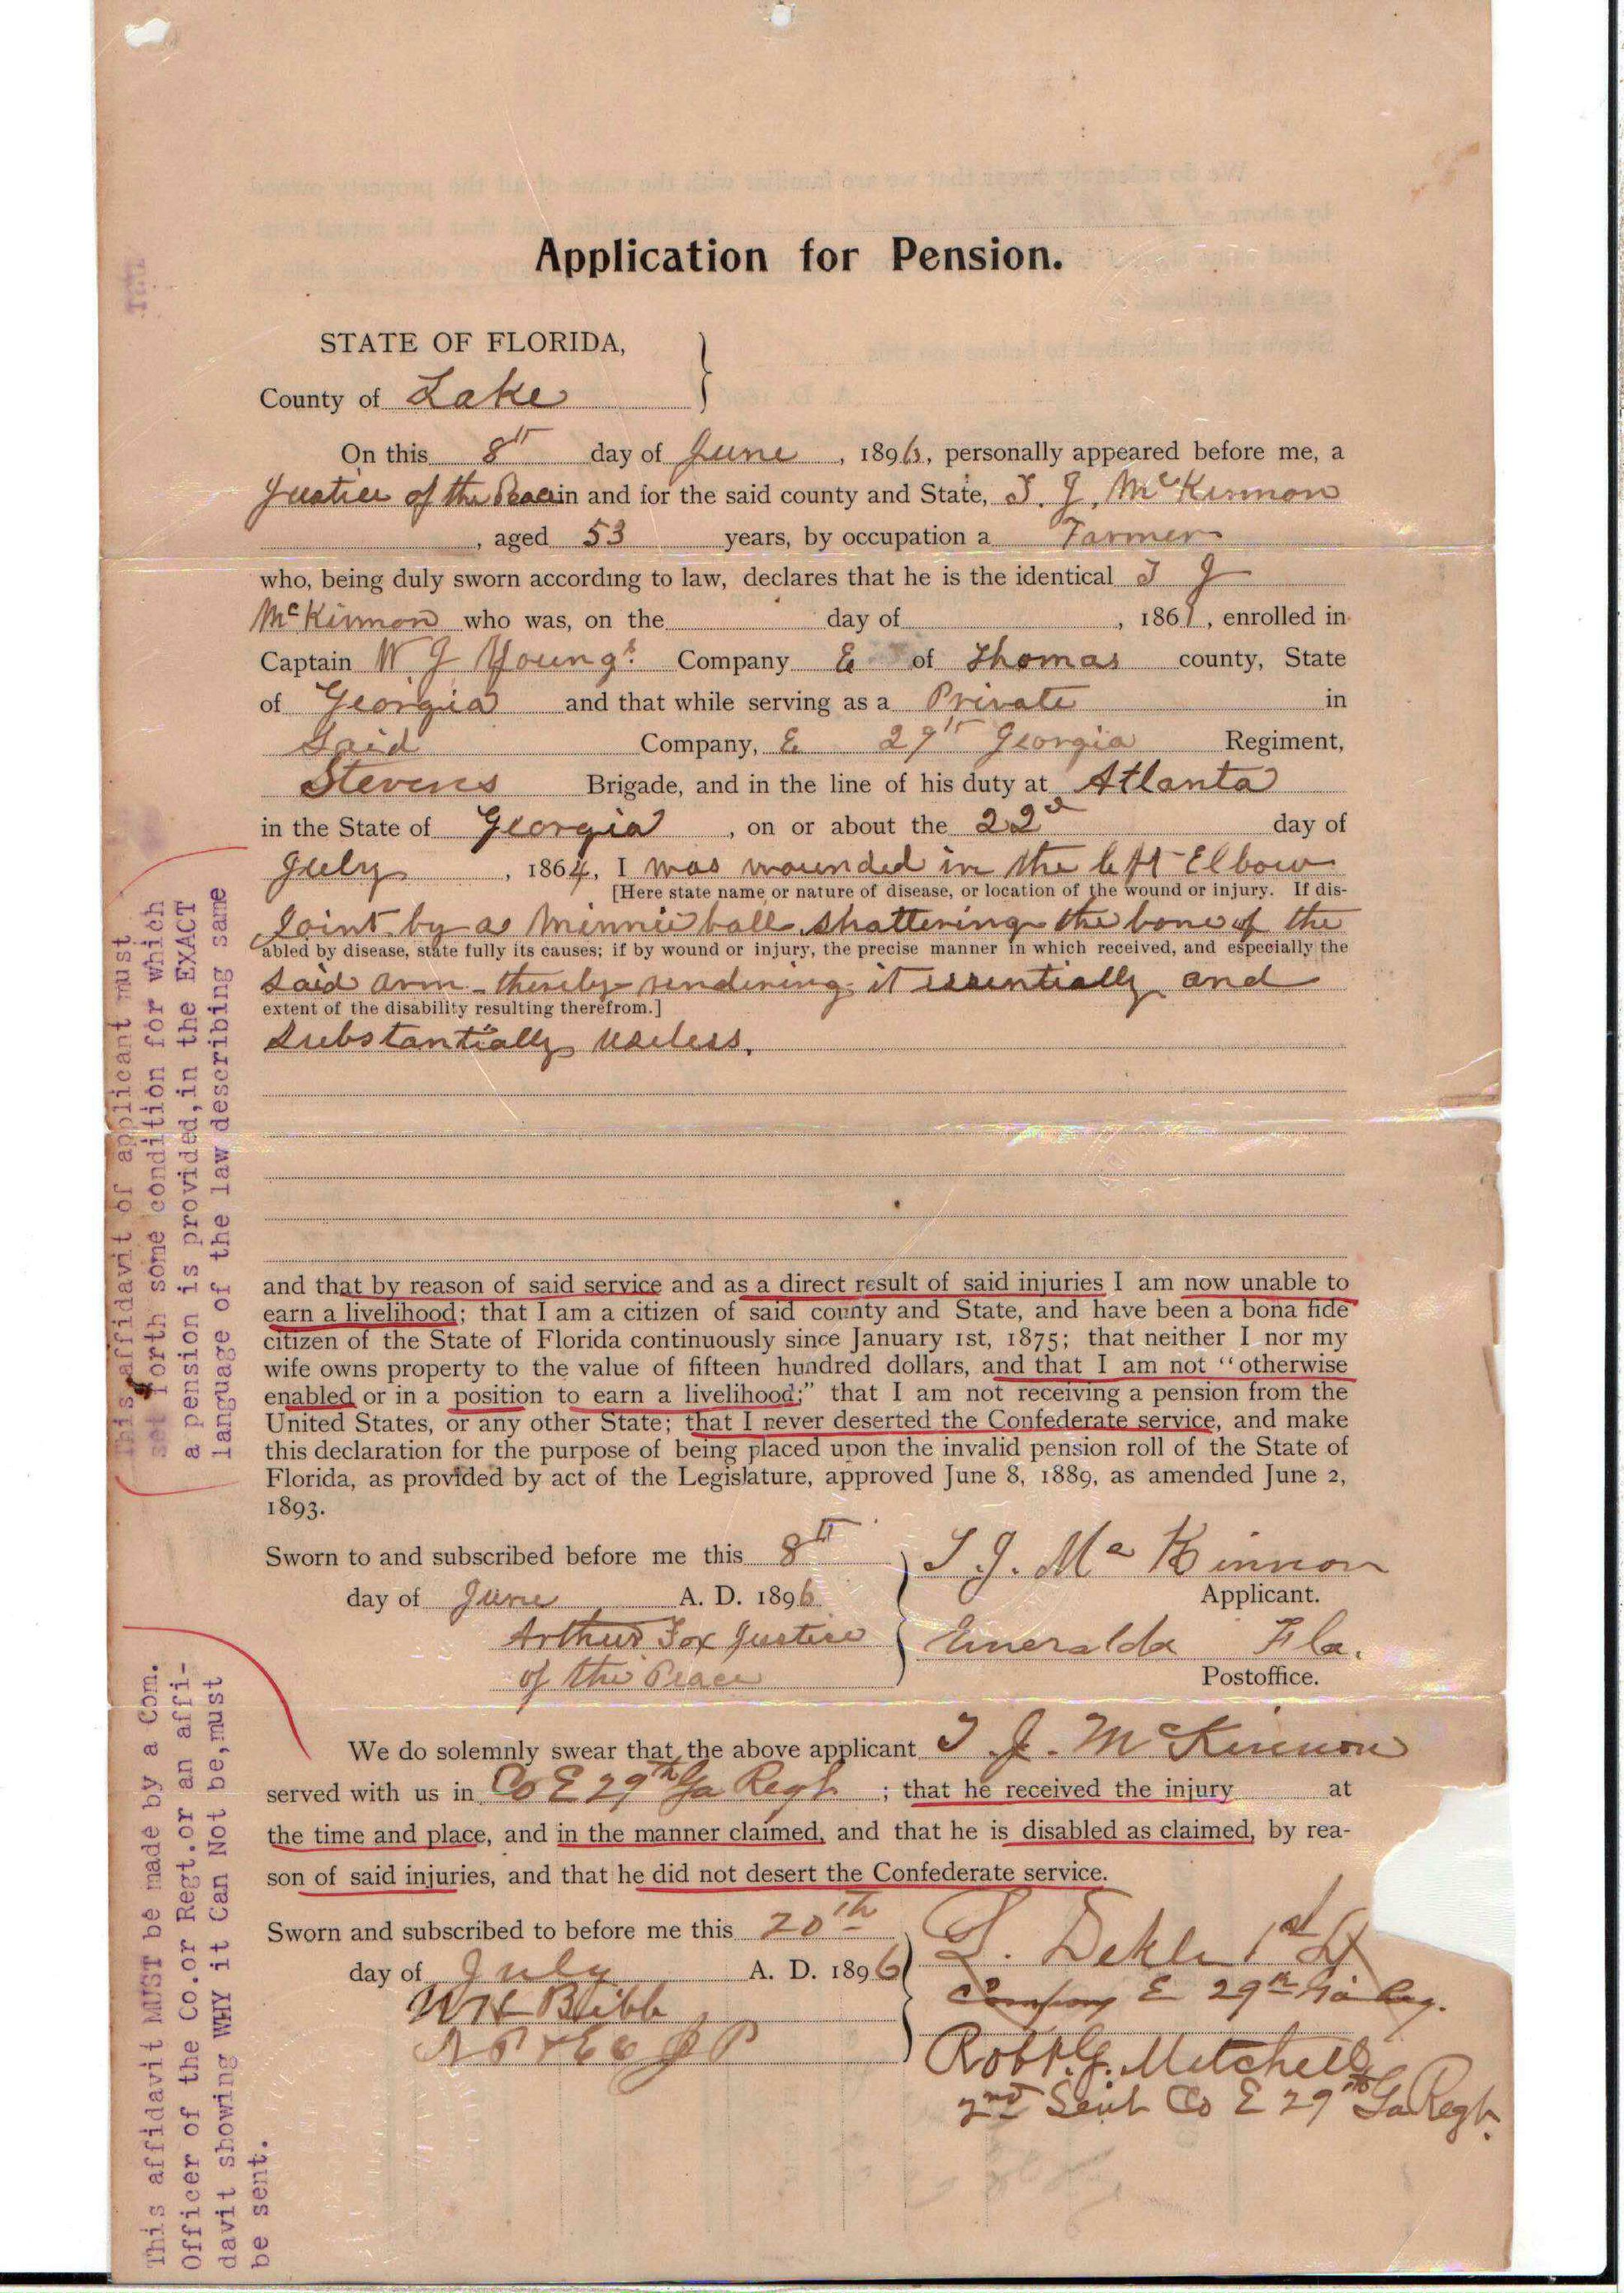 Application for Pension.
STATE OF FLORIDA,
County of Lake
On this 8th day of June, 1896, personally appeared before me, a
Justice of the Peace in and for the said county and State, T. J. McKinnon
, aged 53 years, by occupation a Farmer
who, being duly sworn according to law, declares that he is the identical T J
McKinnon who was, on the day of , 1861, enrolled in
Captain W J Young's Company E of Thomas county, State
of Georgia and that while serving as a Private in
Said Company, E 29th Georgia Regiment,
Stevens Brigade, and in the line of his duty at Atlanta
in the State of Georgia, on or about the 22d day of
July, 1864, I was wounded in the left Elbow
[Here state name or nature of disease, or location of the wound or injury. If dis-
Joint by a Minnie ball shattering the bone of the
abled by disease, state fully its causes; if by wound or injury, the precise manner in which received, and especially the
said arm - thereby rendering it essentially and
extent of the disability resulting therefrom.]
substantially useless.
and that by reason of said service and as a direct result of said injuries I am now unable to
earn a livelihood; that I am a citizen of said county and State, and have been a bona fide
citizen of the State of Florida continuously since January 1st, 1875; that neither I nor my
wife owns property to the value of fifteen hundred dollars, and that I am not "otherwise
enabled or in a position to earn a livelihood;" that I am not receiving a pension from the
United States, or any other State; that I never deserted the Confederate service, and make
this declaration for the purpose of being placed upon the invalid pension roll of the State of
Florida, as provided by act of the Legislature, approved June 8, 1889, as amended June 2,
1893.
Sworn to and subscribed before me this 8th
day of June A. D. 1896
Arthur Fox Justice
of the Peace
T. J. McKinnon
Applicant.
Emeralda Fla.
Postoffice.
We do solemnly swear that the above applicant T. J. McKinnon
served with us in Co E 29th Ga Regt; that he received the injury at
the time and place, and in the manner claimed, and that he is disabled as claimed, by rea-
son of said injuries, and that he did not desert the Confederate service.
Sworn and subscribed to before me this 20th
day of July A. D. 1896
WH Bibb
N P & Ex J P
L. Dekle 1st Lt
Company E 29th Ga Reg.
Robt. G. Mitchell
2nd Lieut Co E 29th Ga Regt.
This affidavit of applicant must
set forth some condition for which
a pension is provided, in the EXACT
language of the law describing same
This affidavit MUST be made by a Com.
Officer of the Co. or Regt. or an affi-
davit showing WHY it Can Not be, must
be sent.